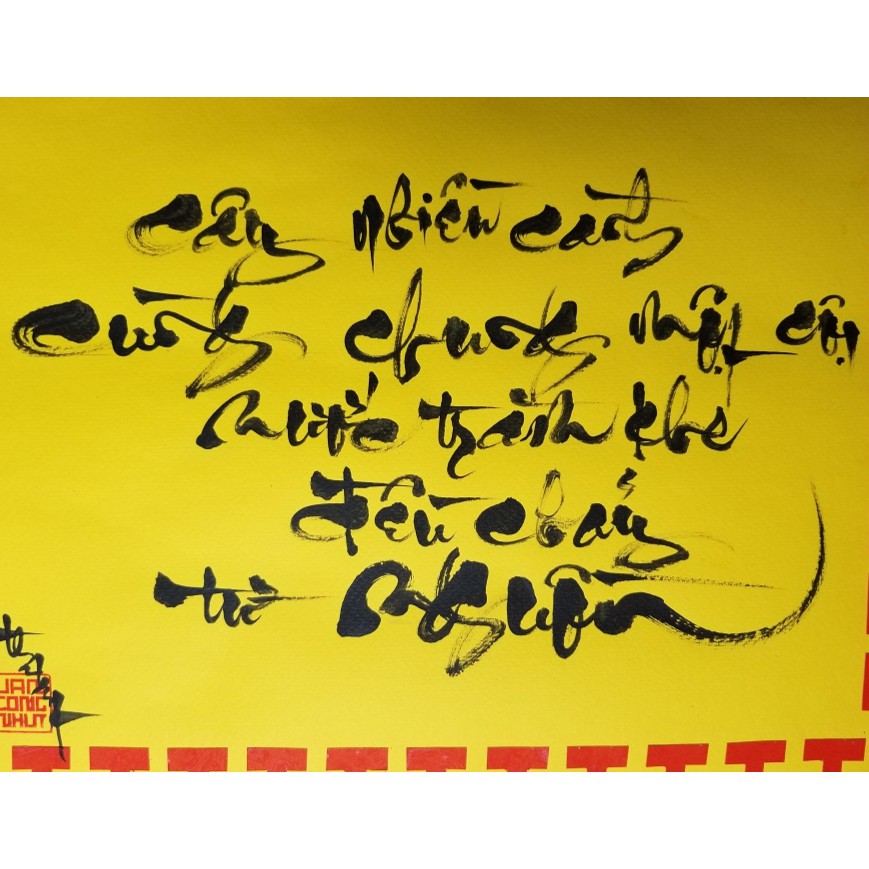 Cây nhiều cành
cũng chung một cội
nước trăm khe
đều chảy
từ nguồn
VAN
CONG
NHUT